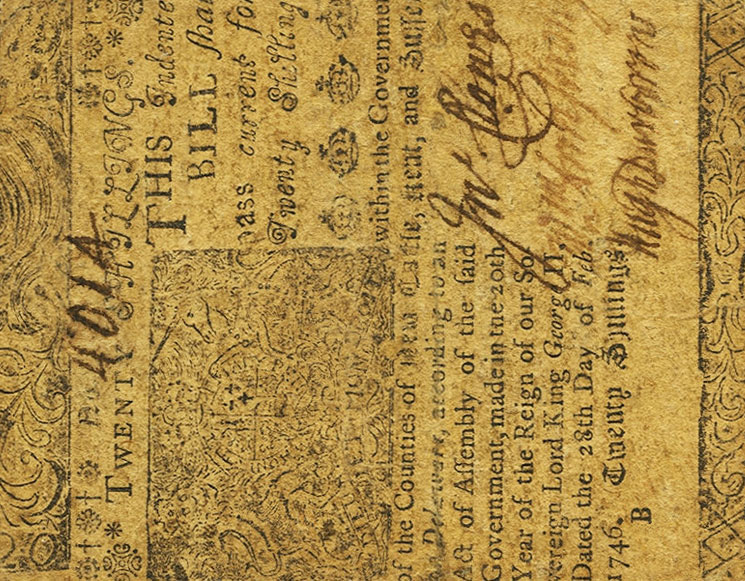 4014
TWENTY SHILLINGS.
THIS Indente
BILL shal
pass current for
Twenty Shilling
within the Government
of the Counties of New Castle, Kent, and Susse
on Delaware, according to an
Act of Aſſembly of the ſaid
Government, made in the 20th
Year of the Reign of our So-
vereign Lord King George II,
Dated the 28th Day of Feb
1746. Twenty Shillings
B
Jnº Clowes
Hugh Durborrow